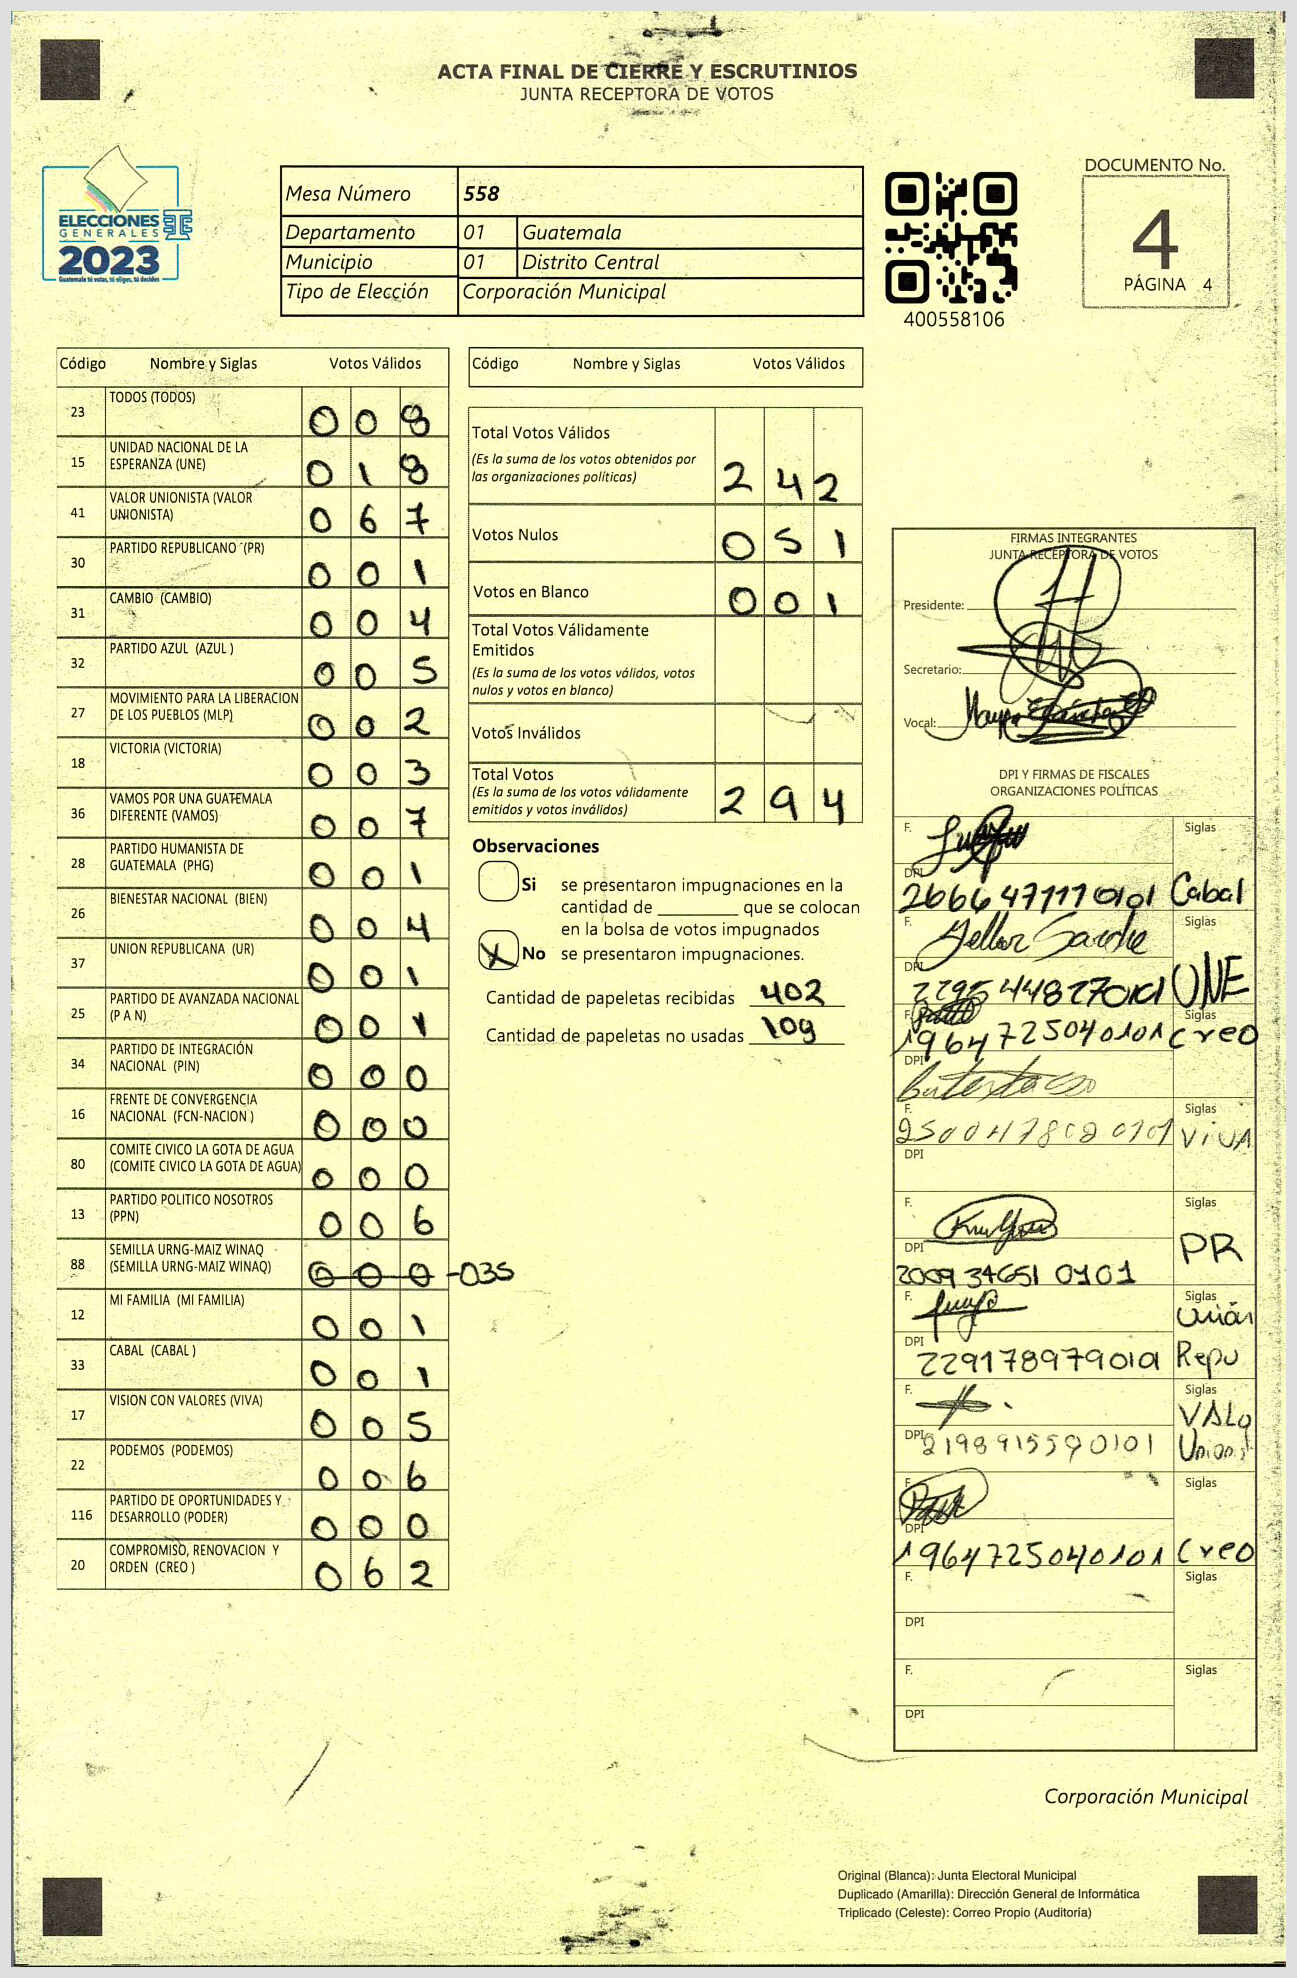 ACTA FINAL DE CIERRE Y ESCRUTINIOS
JUNTA RECEPTORA DE VOTOS
ELECCIONES
GENERALES
2023
Guatemala tú votas, tú eliges, tú decides
Mesa Número 558
Departamento 01 Guatemala
Municipio 01 Distrito Central
Tipo de Elección Corporación Municipal
400558106
DOCUMENTO No.
4
PÁGINA 4
Código Nombre y Siglas Votos Válidos
23 TODOS (TODOS) 0 0 8
15 UNIDAD NACIONAL DE LA ESPERANZA (UNE) 0 1 8
41 VALOR UNIONISTA (VALOR UNIONISTA) 0 6 7
30 PARTIDO REPUBLICANO (PR) 0 0 1
31 CAMBIO (CAMBIO) 0 0 4
32 PARTIDO AZUL (AZUL ) 0 0 5
27 MOVIMIENTO PARA LA LIBERACION DE LOS PUEBLOS (MLP) 0 0 2
18 VICTORIA (VICTORIA) 0 0 3
36 VAMOS POR UNA GUATEMALA DIFERENTE (VAMOS) 0 0 7
28 PARTIDO HUMANISTA DE GUATEMALA (PHG) 0 0 1
26 BIENESTAR NACIONAL (BIEN) 0 0 4
37 UNION REPUBLICANA (UR) 0 0 1
25 PARTIDO DE AVANZADA NACIONAL (P A N) 0 0 1
34 PARTIDO DE INTEGRACIÓN NACIONAL (PIN) 0 0 0
16 FRENTE DE CONVERGENCIA NACIONAL (FCN-NACION ) 0 0 0
80 COMITE CIVICO LA GOTA DE AGUA (COMITE CIVICO LA GOTA DE AGUA) 0 0 0
13 PARTIDO POLITICO NOSOTROS (PPN) 0 0 6
88 SEMILLA URNG-MAIZ WINAQ (SEMILLA URNG-MAIZ WINAQ) 0 0 0 -035
12 MI FAMILIA (MI FAMILIA) 0 0 1
33 CABAL (CABAL ) 0 0 1
17 VISION CON VALORES (VIVA) 0 0 5
22 PODEMOS (PODEMOS) 0 0 6
116 PARTIDO DE OPORTUNIDADES Y DESARROLLO (PODER) 0 0 0
20 COMPROMISO, RENOVACION Y ORDEN (CREO ) 0 6 2
Código Nombre y Siglas Votos Válidos
Total Votos Válidos 2 4 2
(Es la suma de los votos obtenidos por
las organizaciones políticas)
Votos Nulos 0 5 1
Votos en Blanco 0 0 1
Total Votos Válidamente
Emitidos
(Es la suma de los votos válidos, votos
nulos y votos en blanco)
Votos Inválidos
Total Votos 2 9 4
(Es la suma de los votos válidamente
emitidos y votos inválidos)
Observaciones
Si se presentaron impugnaciones en la
cantidad de ________ que se colocan
en la bolsa de votos impugnados
X No se presentaron impugnaciones.
Cantidad de papeletas recibidas 402
Cantidad de papeletas no usadas 109
FIRMAS INTEGRANTES
JUNTA RECEPTORA DE VOTOS
Presidente:
Secretario:
Vocal:
DPI Y FIRMAS DE FISCALES
ORGANIZACIONES POLÍTICAS
F. Siglas
DPI 2666471110101 Cabal
F. Siglas
DPI 2295448270101 UNE
F. Siglas
1964725040101 Creo
DPI
F. Siglas
2500478020101 ViVA
DPI
F. Siglas
DPI PR
2009346510101
F. Siglas
Unión
DPI 2291789790101 Repu
F. Siglas
VALo
DPI 2198915590101 Unionis
F. Siglas
DPI
1964725040101 Creo
F. Siglas
DPI
F. Siglas
DPI
Corporación Municipal
Original (Blanca): Junta Electoral Municipal
Duplicado (Amarilla): Dirección General de Informática
Triplicado (Celeste): Correo Propio (Auditoría)